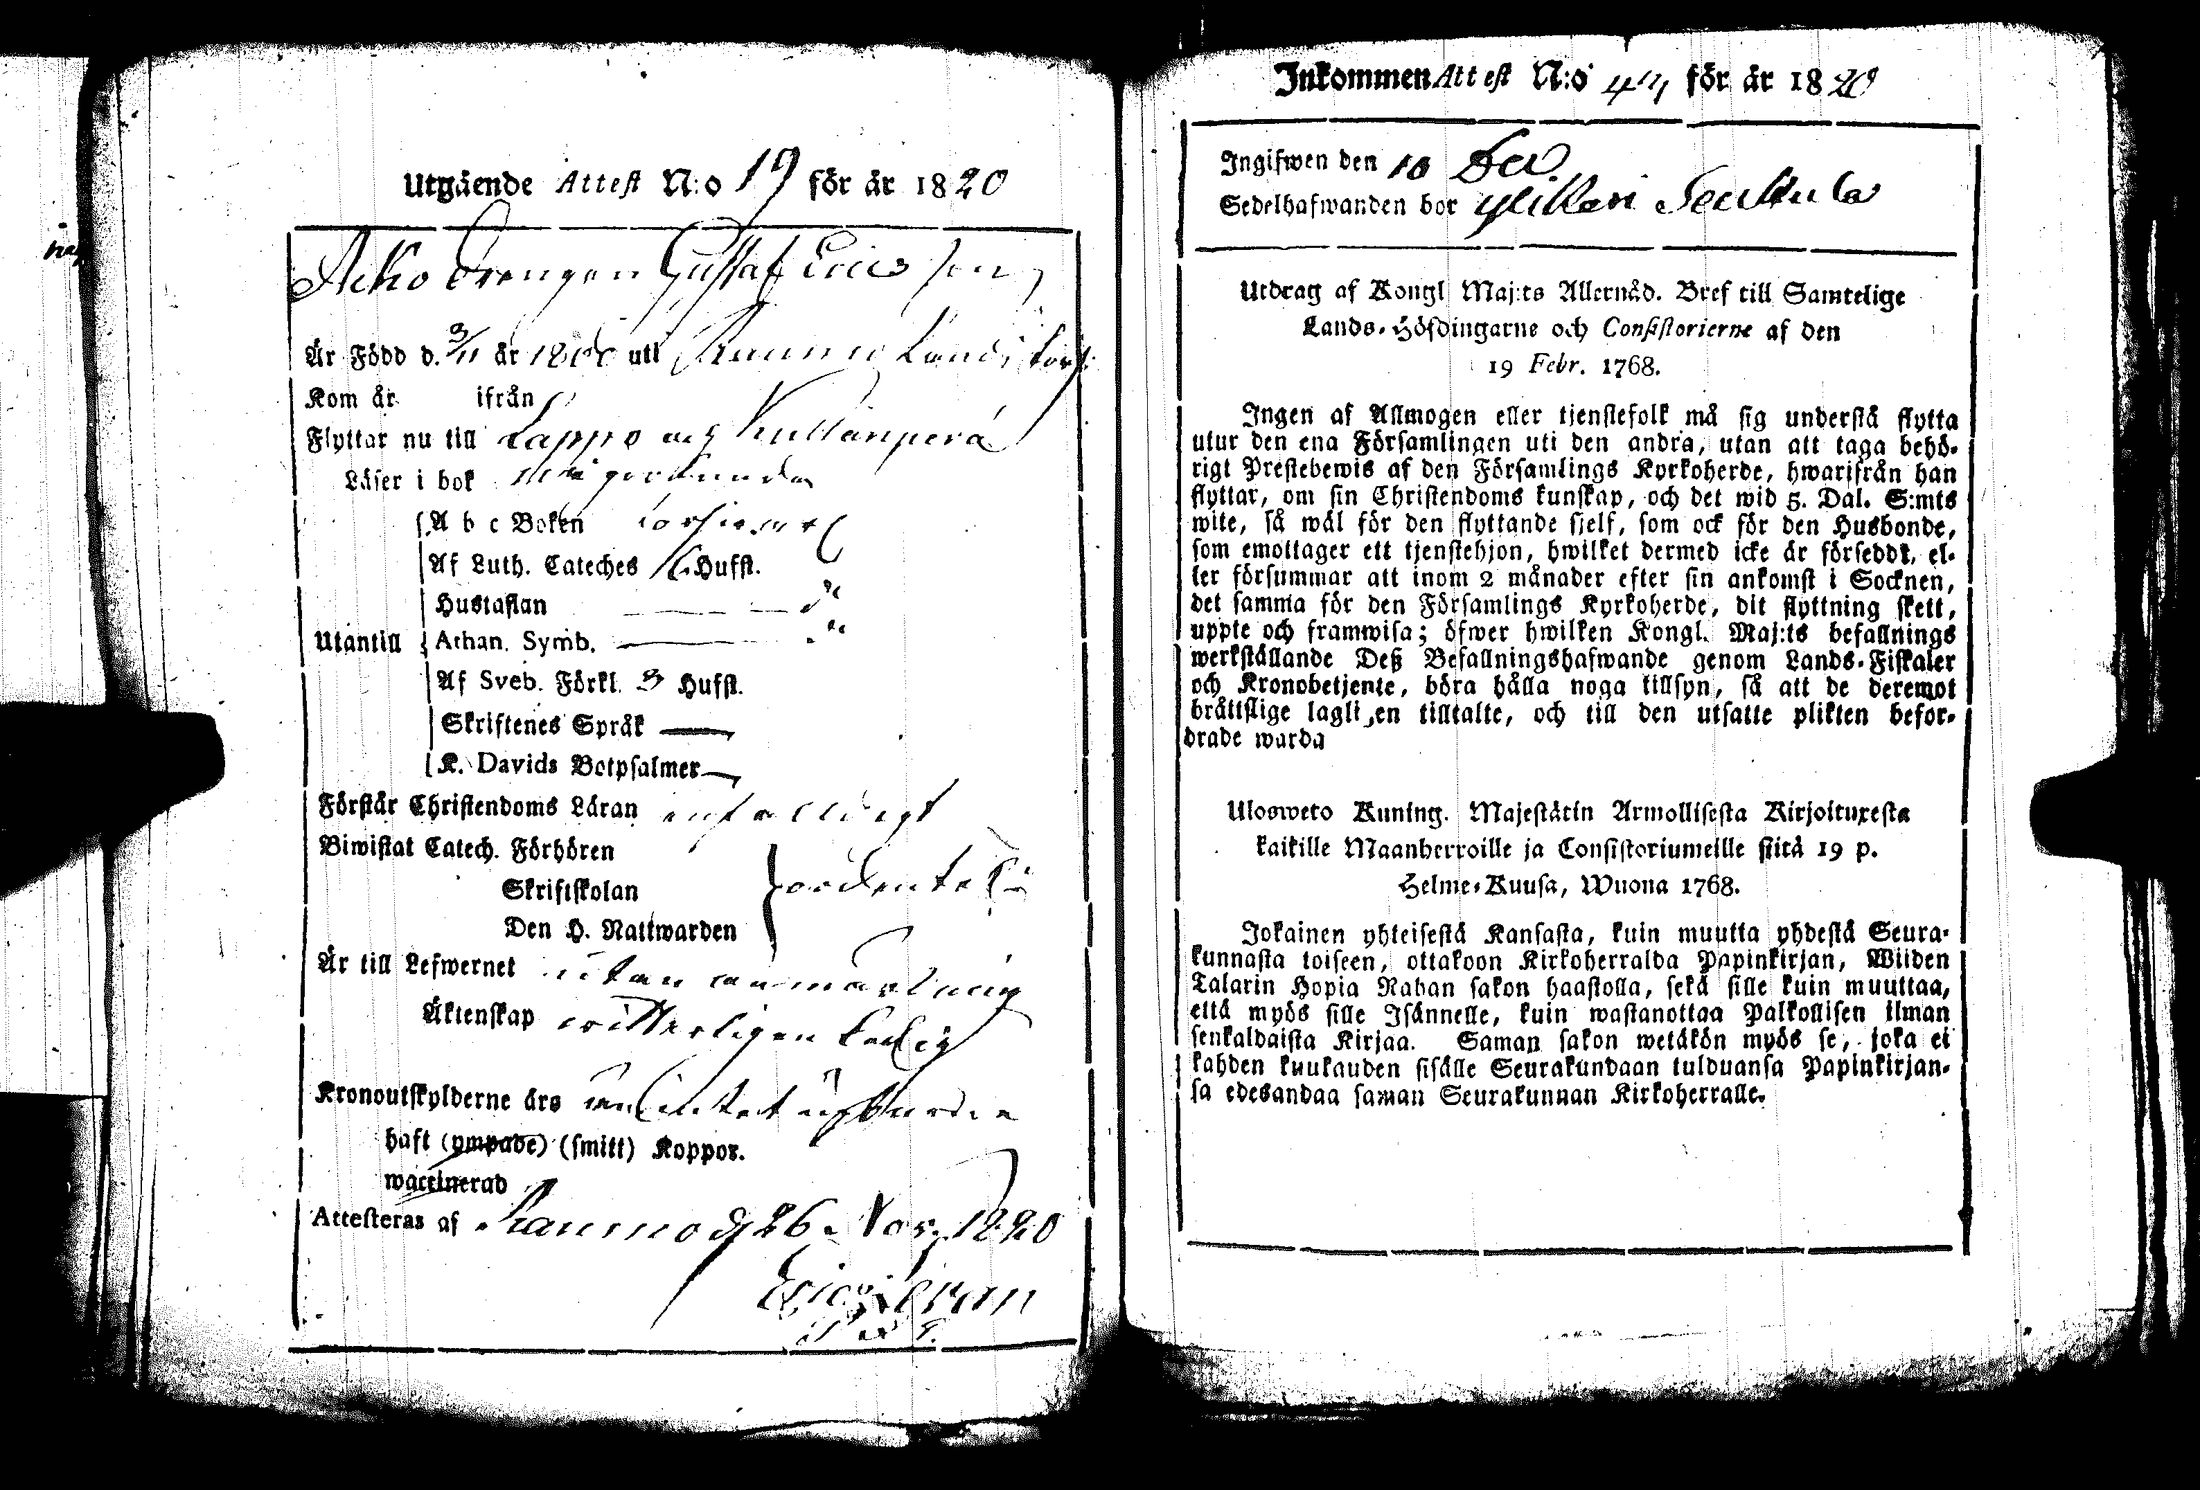 Utgående Attest N:o 19 för år 1820
Acko Drengen Gustaf Ericsson
Är Född d. 3/11 år 1800 uti Raumo Lands förs:
Kom år ifrån
Flyttar nu till Lappo och Kullanperä
Läser i bok någorlunda
A b c Boken försvarl
Af Luth. Cateches Hufst.
Hustaflan — — — d:o
Utantill Athan. Symb. — d:o
Af Sveb. Förkl. 3 Hufst.
Skriftenes Språk —
K. Davids Botpsalmer —
Förstår Christendoms Läran enfalldigt
Biwistat Catech. Förhören
Skriftskolan ordentel:
Den H. Nattwarden
Är till Lefwernet utan anmärkning
Äktenskap witterligen ledig
Kronoutskylderne äro
haft (ympade) (smitt) Koppor.
waccinerad
Attesteras af Raumo d 26 Nov. 1820
Eric
Inkommen Attest N:o för år 1820
Ingifwen den 10 Dec
Sedelhafwanden bor
Utdrag af Kongl Maj:ts Allernåd. Bref till Samtelige
Lands-Höfdingarne och Consistorierne af den
19 Febr. 1768.
Ingen af Allmogen eller tjenstefolk må sig understå flytta
utur den ena Församlingen uti den andra, utan att taga behö-
rigt Prestebewis af den Församlings Kyrkoherde, hwarifrån han
flyttar, om sin Christendoms kunskap, och det wid 5. Dal. S:mts
wite, så wäl för den flyttande sjelf, som ock för den Husbonde,
som emottager ett tjenstehjon, hwilket dermed icke är försedt, el-
ler försummar att inom 2 månader efter sin ankomst i Socknen,
det samma för den Församlings Kyrkoherde, dit flyttning skett,
uppte och framwisa; öfwer hwilken Kongl. Maj:ts befallnings
werkställande Deß Befallningshafwande genom Lands-Fiskaler
och Kronobetjente, böra hålla noga tillsyn, så att de deremot
bråttslige lagligen tilltalte, och till den utsatte plikten befor-
drade warda
Ulosweto Kuning. Majestätin Armollisesta Kirjoituxesta
kaikille Maanherroille ja Consistoriumeille siitä 19 p.
Helme-Kuusa, Wuona 1768.
Jokainen yhteisestä Kansasta, kuin muutta yhdestä Seura-
kunnasta toiseen, ottakoon Kirkoherralda Papinkirjan, Wiiden
Talarin Hopia Rahan sakon haastolla, sekä sille kuin muuttaa,
että myös sille Isännelle, kuin wastanottaa Palkollisen ilman
senkaldaista Kirjaa. Saman sakon wetäkön myös se, joka ei
kahden kuukauden sisälle Seurakundaan tulduansa Papinkirjan-
sa edesandaa saman Seurakunnan Kirkoherralle.